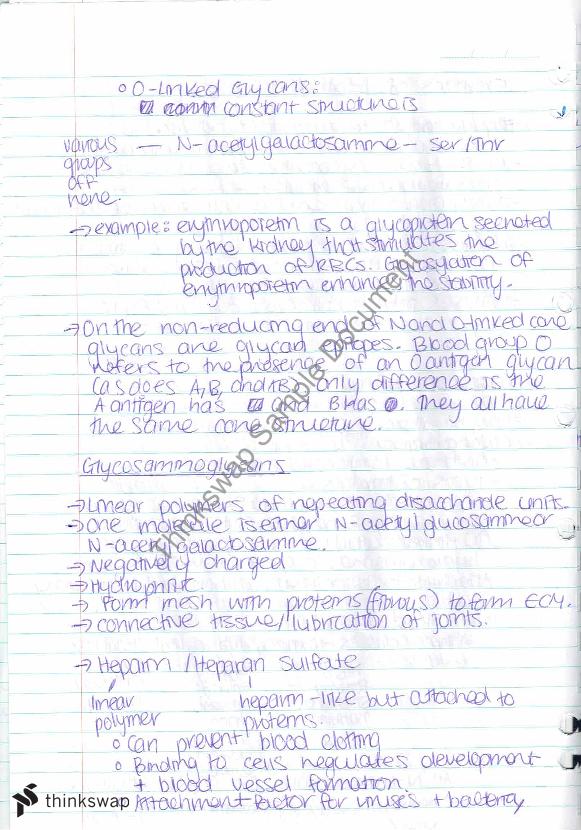 O-Linked Glycans:
constant structure is
various — N-acetylgalactosamine – ser/Thr
groups
off
here.
→ example: erythroporetin is a glycoprotein secreted
by the kidney that stimulates the
production of RBCs. Glycosylation of
erythroporetin enhances the stability.
→ On the non-reducing end of N and O-linked core
glycans are glycan epitopes. Blood group O
refers to the presence of an O antigen glycan
(as does A, B, and AB) only difference is the
A antigen has and B has . They all have
the same core structure.
Glycosaminoglycans
→ Linear polymers of repeating disaccharide units.
→ One molecule is either N-acetylglucosamine or
N-acetylgalactosamine.
→ Negatively charged
→ Hydrophilic.
→ Form mesh with proteins (fibrous) to form ECM.
→ connective tissue/lubrication of joints.
→ Heparin / Heparan sulfate
linear heparin-like but attached to
polymer proteins.
Can prevent blood clotting
Binding to cells regulates development
+ blood vessel formation.
Attachment factor for viruses + bacteria
thinkswap
Thinkswap Sample Document